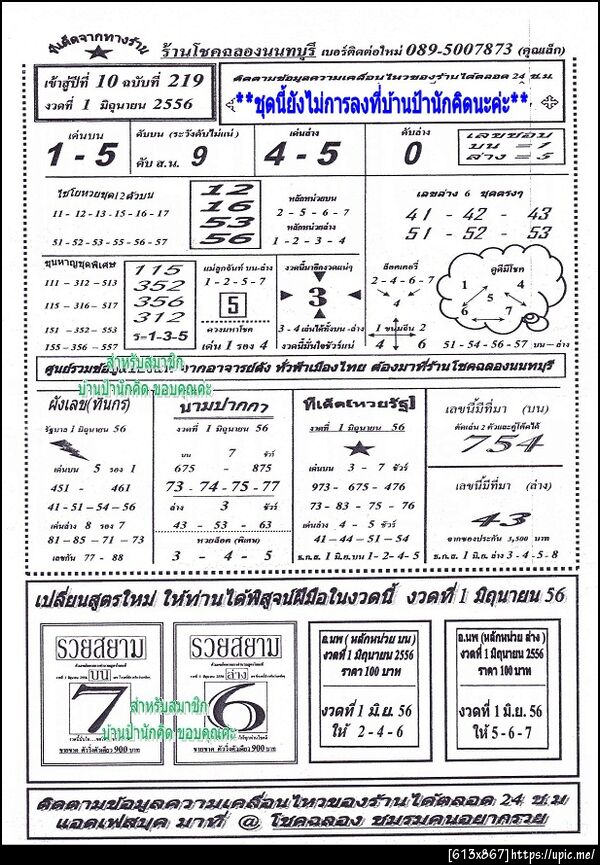 ร้านโชคฉลองนนทบุรี เบอร์ติดต่อใหม่ 089-5007873 (คุณเล็ก)
เข้าสู่ปีที่ 10 ฉบับที่ 219
งวดที่ 1 มิถุนายน 2556
ติดตามข้อมูลความเคลื่อนไหวของร้านได้ตลอด 24 ช.ม.
**ชุดนี้ยังไม่การลงที่บ้านป้านักคิดนะค่ะ**
เด่นบน
1 - 5
ดับบน (ระวังดับไม่แน่)
ดับ ส.น. 9
เด่นล่าง
4 - 5
ดับล่าง
0
เลขชอบ
บน = 1
ล่าง = 5
ไชโยหวยชุด12ตัวบน
11 - 12 - 13 - 15 - 16 - 17
51 - 52 - 53 - 55 - 56 - 57
12
16
53
56
หลักหน่วยบน
2 - 5 - 6 - 7
หลักหน่วยล่าง
1 - 2 - 3 - 4
เลขล่าง 6 ชุดตรงๆ
41 - 42 - 43
51 - 52 - 53
ขุนหาญชุดพิเศษ
111 - 312 - 513
115 - 316 - 517
151 - 352 - 553
155 - 356 - 557
115
352
356
312
ร=1-3-5
แม่ลูกจันท์ บน-ล่าง
1 - 2 - 5 - 7
5
ดวงมหาโชค
เด่น 1 รอง 4
งวดนี้มาอีกงวดแน่ๆ
3
3 - 4 เล่นได้ทั้งบน - ล่าง
งวดนี้มั่นใจชัวร์แน่
ล็อคเกอรี่
2 - 4 - 6 - 7
4
1 ขนมจีน 2
4 6
ดูดีมีโชค
1 4
5
6 7
51 - 54 - 56 - 57 บน - ล่าง
สำหรับสมาชิก
บ้านป้านักคิด ขอบคุณค่ะ
ศูนย์รวมข้อมูล จากอาจารย์ดัง ทั่วฟ้าเมืองไทย ต้องมาที่ร้านโชคฉลองนนทบุรี
ผังเลข(ทินกร)
รัฐบาล 1 มิถุนายน 56
เด่นบน 5 รอง 1
451 - 461
41 - 51 - 54 - 56
เด่นล่าง 8 รอง 7
81 - 85 - 71 - 73
เลขกัน 77 - 88
นามปากกา
งวดที่ 1 มิถุนายน 56
บน 7 ชัวร์
675 - 875
73 - 74 - 75 - 77
ล่าง 3 ชัวร์
43 - 53 - 63
หวยล็อค (พิเศษ)
3 - 4 - 5
ทีเด็ด(หวยรัฐ)
งวดที่ 1 มิถุนายน 56
เด่นบน 3 - 7 ชัวร์
973 - 675 - 476
73 - 83 - 75 - 76
เด่นล่าง 4 - 5 ชัวร์
41 - 44 - 51 - 54
ธ.ก.ส. 1 มิ.ย. บน 1- 2- 4- 5
เลขนี้มีที่มา (บน)
คัดเน้น 2 ตัวและคู่โต๊ดได้
754
เลขนี้มีที่มา (ล่าง)
43
จากของประกัน 3,500 บาท
ธ.ก.ส. 1 มิ.ย. ล่าง 3- 4- 5- 8
เปลี่ยนสูตรใหม่ ให้ท่านได้พิสูจน์ฝีมือในงวดนี้ งวดที่ 1 มิถุนายน 56
รวยสยาม
บน
7
ขายขาด ตัววิ่งตัวเดียว 900 บาท
รวยสยาม
ล่าง
6
ขายขาด ตัววิ่งตัวเดียว 900 บาท
สำหรับสมาชิก
บ้านป้านักคิด ขอบคุณค่ะ
อ.นพ (หลักหน่วย บน)
งวดที่ 1 มิถุนายน 2556
ราคา 100 บาท
งวดที่ 1 มิ.ย. 56
ให้ 2 - 4 - 6
อ.นพ (หลักหน่วย ล่าง)
งวดที่ 1 มิถุนายน 2556
ราคา 100 บาท
งวดที่ 1 มิ.ย. 56
ให้ 5 - 6 - 7
ติดตามข้อมูลความเคลื่อนไหวของร้านได้ตลอด 24 ช.ม
แอดเฟสบุค มาที่ @ โชคฉลอง ชมรมคนอยากรวย
[613x867]https://upic.me/